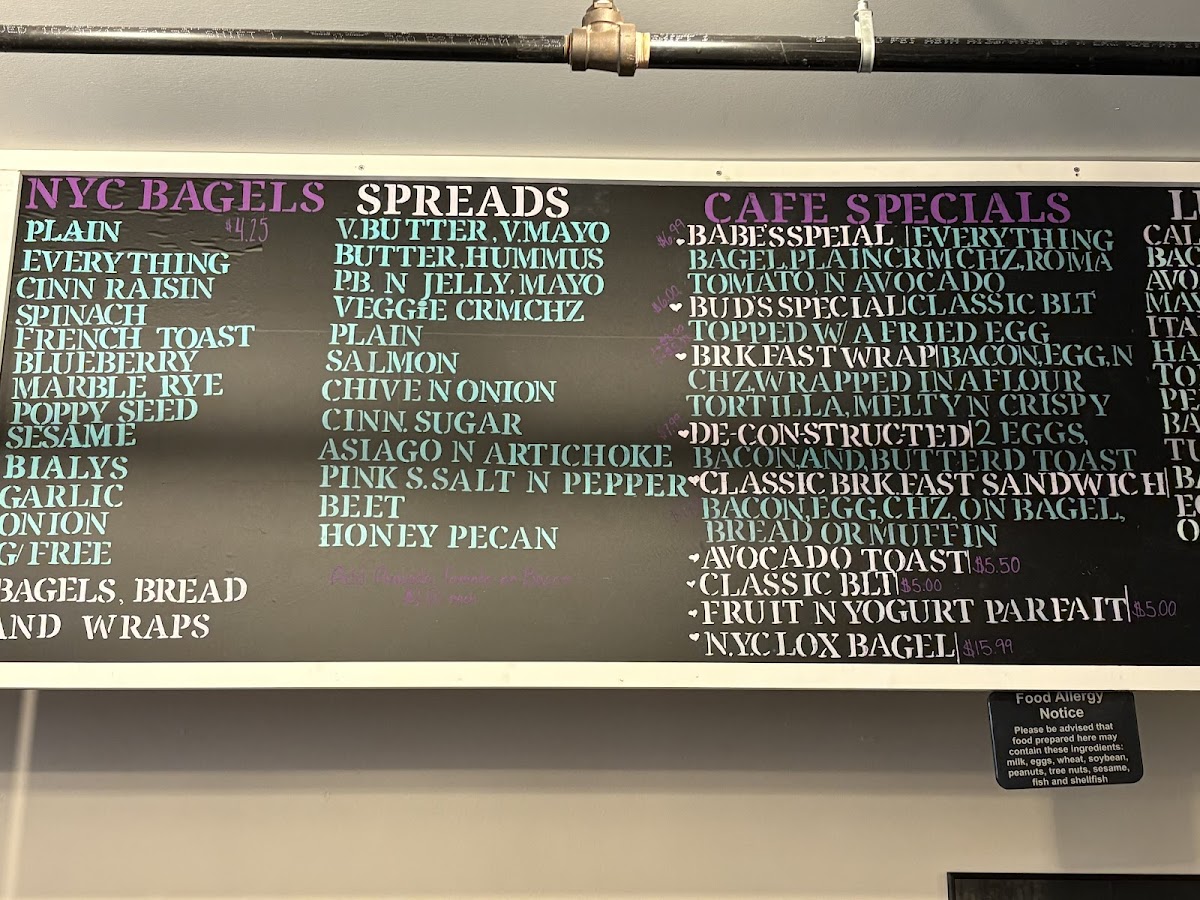 NYC BAGELS
$4.25
PLAIN
EVERYTHING
CINN RAISIN
SPINACH
FRENCH TOAST
BLUEBERRY
MARBLE RYE
POPPY SEED
SESAME
BIALYS
GARLIC
ONION
G/FREE
BAGELS, BREAD
AND WRAPS
SPREADS
V.BUTTER, V.MAYO
BUTTER, HUMMUS
PB. N JELLY, MAYO
VEGGiE CRMCHZ
PLAIN
SALMON
CHIVE N ONION
CINN. SUGAR
ASIAGO N ARTICHOKE
PINK S.SALT N PEPPER
BEET
HONEY PECAN
CAFE SPECIALS
$6.99
BABE'SSPEIAL |EVERYTHING
BAGEL,PLAINCRM CHZ,ROMA
TOMATO,N AVOCADO
$6.00
BUD'S SPECIAL|CLASSIC BLT
TOPPED W/ A FRIED EGG
BRK.FAST WRAP|BACON,EGG,N
CHZ,WRAPPED IN A FLOUR
TORTILLA,MELTY N CRISPY
DE-CONSTRUCTED|2 EGGS,
BACON,AND,BUTTERD TOAST
CLASSIC BRK.FAST SANDWICH|
BACON,EGG,CHZ, ON BAGEL,
BREAD OR MUFFIN
AVOCADO TOAST|$5.50
CLASSIC BLT|$5.00
FRUIT N YOGURT PARFAIT|$5.00
N.Y.C LOX BAGEL|$15.99
Food Allergy
Notice
Please be advised that
food prepared here may
contain these ingredients:
milk, eggs, wheat, soybean,
peanuts, tree nuts, sesame,
fish and shellfish